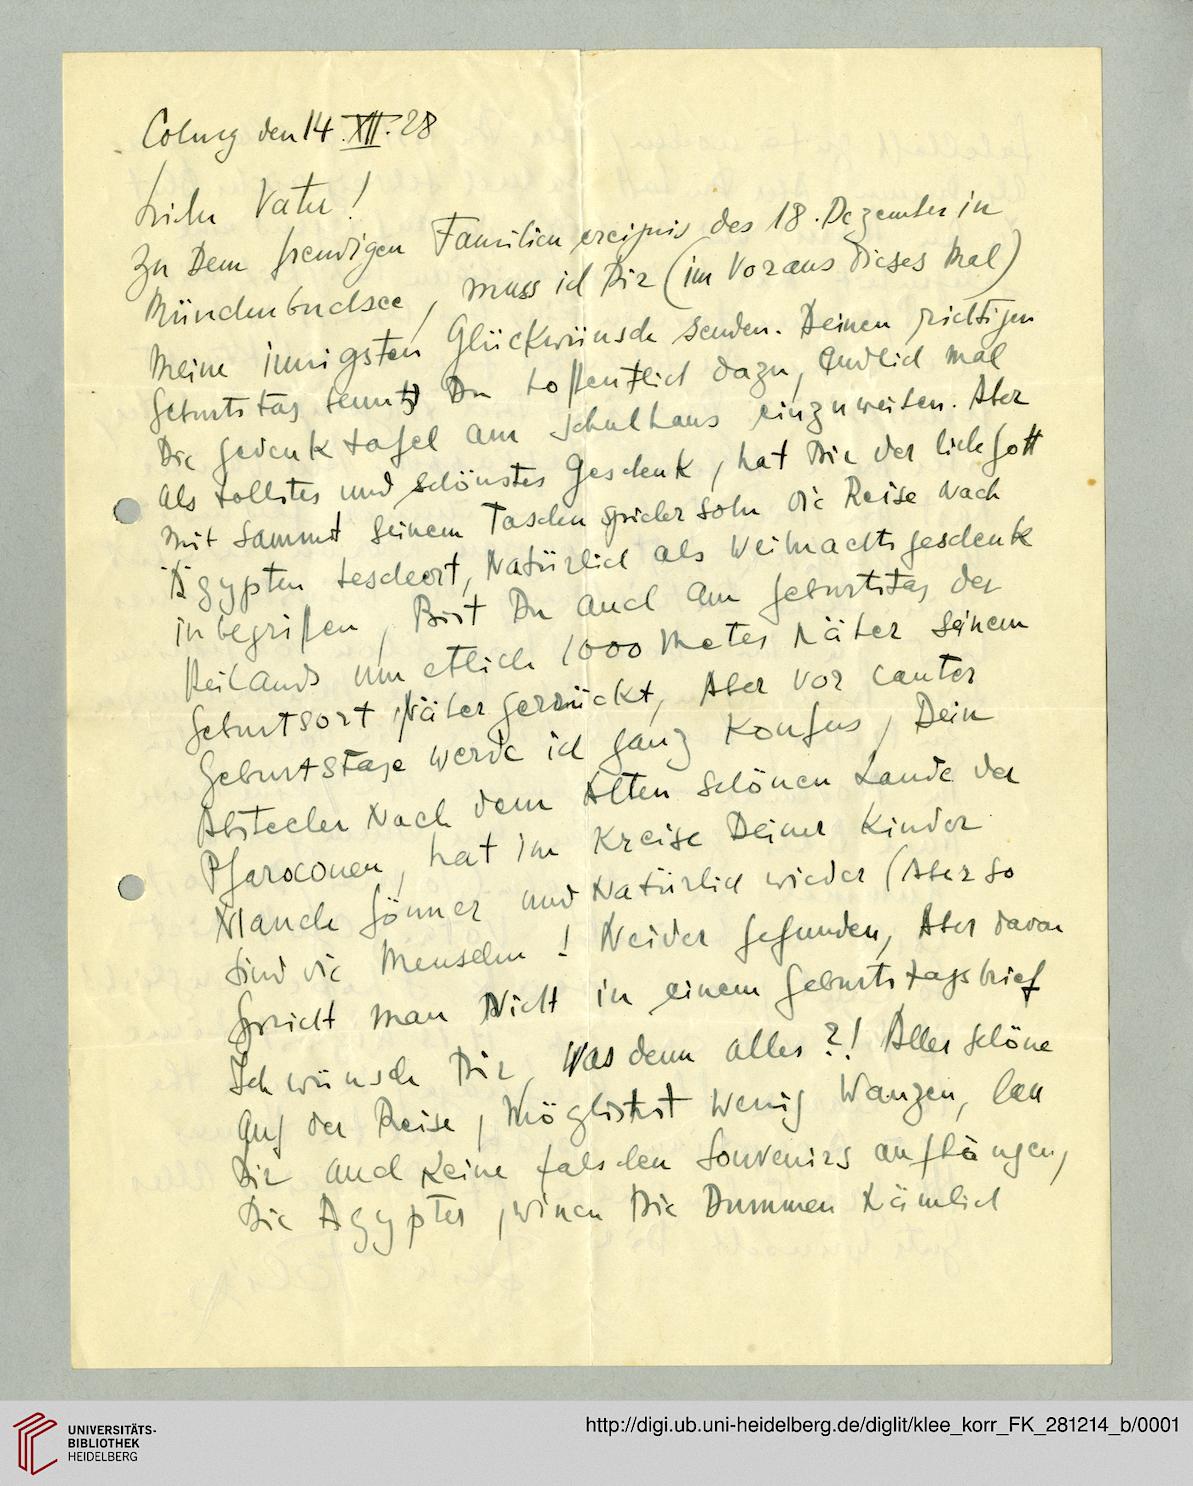 Coburg den 14.XII.28
Lieber Vater!
Zu Dem freudigen Familien ereignis des 18. Dezember in
Münchenbuchsee, muss ich Dir (im Voraus dieses Mal)
meine innigsten Glückwünsche senden. Deinen richtigen
Geburtstag benutz Du hoffentlich dazu, Endlich mal
Die Gedenk tafel am Schulhaus einzuweihen. Aber
als tollstes und schönstes Geschenk, hat Dir der liebe Gott
mit sammt seinem Taschenspieler sohn die Reise nach
Ägypten beschert, Natürlich als Weihnachts geschenk
inbegriffen, Bist Du auch am Geburtstag des
Heilands um etliche 1000 Meter Näher seinem
Geburtsort Näher gerrückt, Aber vor lauter
Geburtstage werde ich ganz Konfus, Dein
Abstecher Nach dem Alten schönen Lande der
Pharaonen, hat im Kreise Deiner Kinder
Manche Gönner und Natürlich wieder (Aber so
sind die Menschen! Neider gefunden, Aber davon
spricht man Nicht in einem Geburtstagsbrief
Ich wünsche Dir, Was denn alles?! Alles schöne
Auf der Reise, Möglichst wenig Wanzen, las
Dir auch Keine falschen Souvenirs aufhängen,
Die Ägypter, Die Dummen Nämlich
UNIVERSITÄTS-
BIBLIOTHEK
HEIDELBERG
http://digi.ub.uni-heidelberg.de/diglit/klee_korr_FK_281214_b/0001